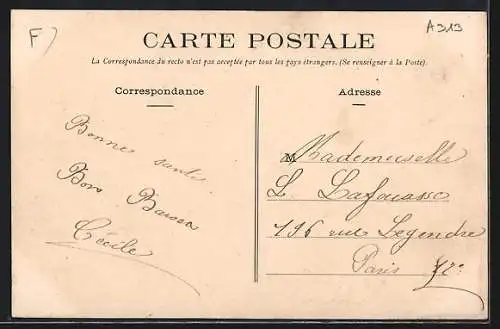 F)
A313
CARTE POSTALE
La Correspondance du recto n'est pas acceptée par tous les pays étrangers. (Se renseigner à la Poste).
Correspondance
Bonne santé
Bons
Cécile
Adresse
Mademoiselle
L. Lafouasse
196 rue Legendre
Paris 17e